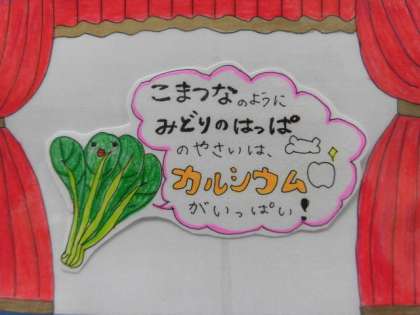 こまつなのように
みどりのはっぱ
のやさいは、
カルシウム
がいっぱい!